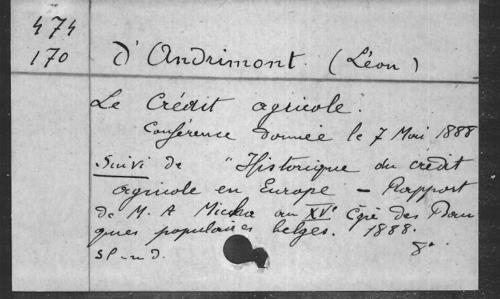 474
170
d'Andrimont (Léon)
Le Crédit agricole.
Conférence donnée le 7 Mai 1888
Suivi de "Historique du crédit
agricole en Europe - Rapport
de M. A Micha au XVe Cgrè des Ban
ques populaires belges. 1888.
8°.
sl-nd.